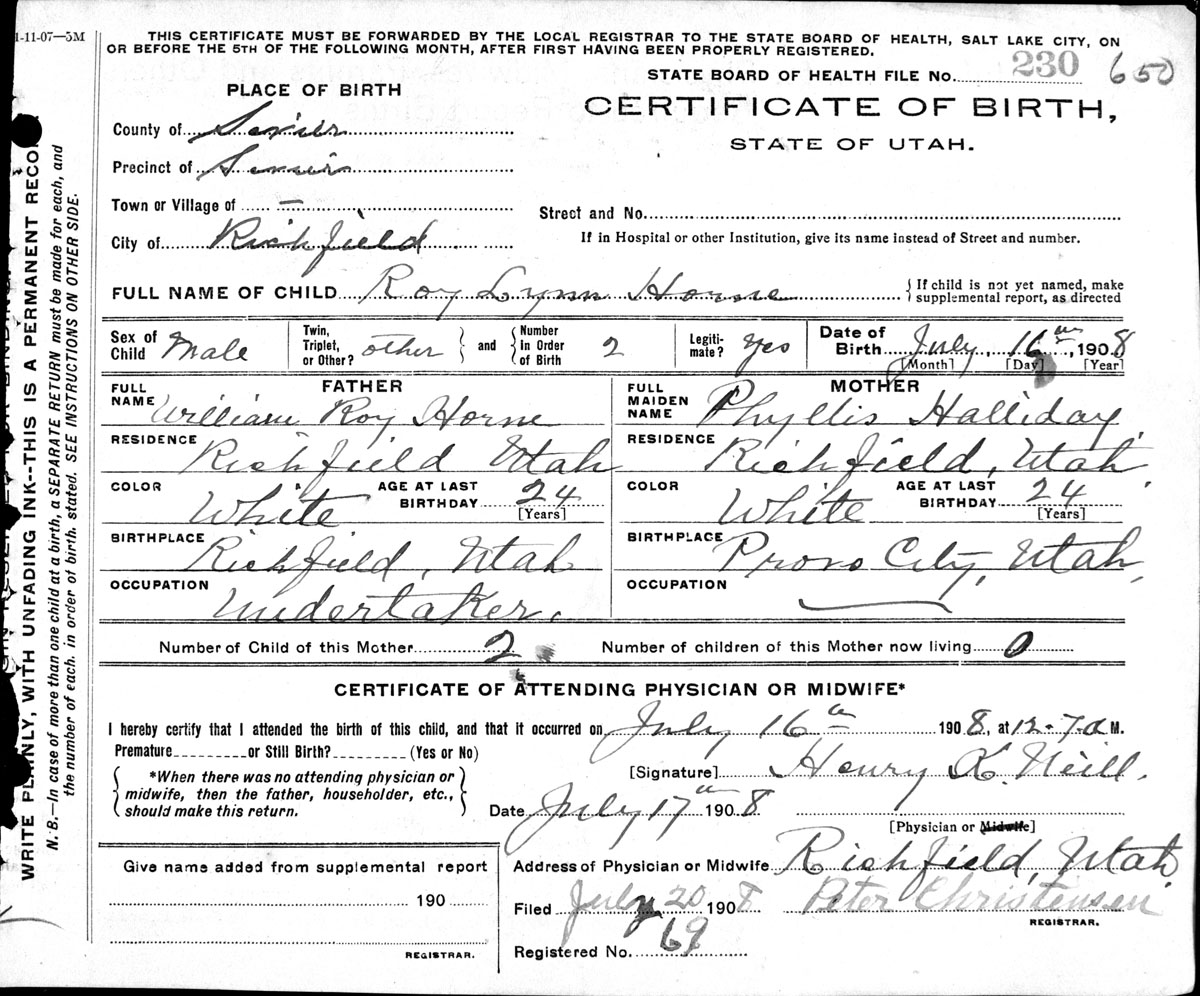 1-11-07—5M
THIS CERTIFICATE MUST BE FORWARDED BY THE LOCAL REGISTRAR TO THE STATE BOARD OF HEALTH, SALT LAKE CITY, ON
OR BEFORE THE 5TH OF THE FOLLOWING MONTH, AFTER FIRST HAVING BEEN PROPERLY REGISTERED.
STATE BOARD OF HEALTH FILE No. 230 650
PLACE OF BIRTH
CERTIFICATE OF BIRTH,
STATE OF UTAH.
County of Sevier
Precinct of Sevier
Town or Village of —
Street and No.
City of Richfield
If in Hospital or other Institution, give its name instead of Street and number.
FULL NAME OF CHILD Roy Lynn Horne { If child is not yet named, make
supplemental report, as directed
Sex of Child Male Twin, Triplet, or Other? other } and { Number In Order of Birth 2 Legiti- mate? Yes Date of Birth July, 16th, 1908
[Month] [Day] [Year]
FATHER MOTHER
FULL NAME William Roy Horne FULL MAIDEN NAME Phyllis Halliday
RESIDENCE Richfield Utah RESIDENCE Richfield, Utah
COLOR White AGE AT LAST BIRTHDAY 24 [Years] COLOR White AGE AT LAST BIRTHDAY 24 [Years]
BIRTHPLACE Richfield, Utah BIRTHPLACE Provo City, Utah,
OCCUPATION Undertaker. OCCUPATION —
Number of Child of this Mother 2 Number of children of this Mother now living 0
CERTIFICATE OF ATTENDING PHYSICIAN OR MIDWIFE*
I hereby certify that I attended the birth of this child, and that it occurred on July 16th 1908, at 12-7-a M.
Premature or Still Birth? (Yes or No)
{ *When there was no attending physician or
midwife, then the father, householder, etc.,
should make this return. }
[Signature] Henry K. Neill.
Date July 17th 1908
[Physician or Midwife]
Give name added from supplemental report
190
REGISTRAR.
Address of Physician or Midwife Richfield, Utah.
Filed July 20 1908 Peter Christensen
REGISTRAR.
Registered No. 69
WRITE PLAINLY, WITH UNFADING INK--THIS IS A PERMANENT RECO
N. B.—In case of more than one child at a birth, a SEPARATE RETURN must be made for each, and
the number of each, in order of birth, stated. SEE INSTRUCTIONS ON OTHER SIDE.